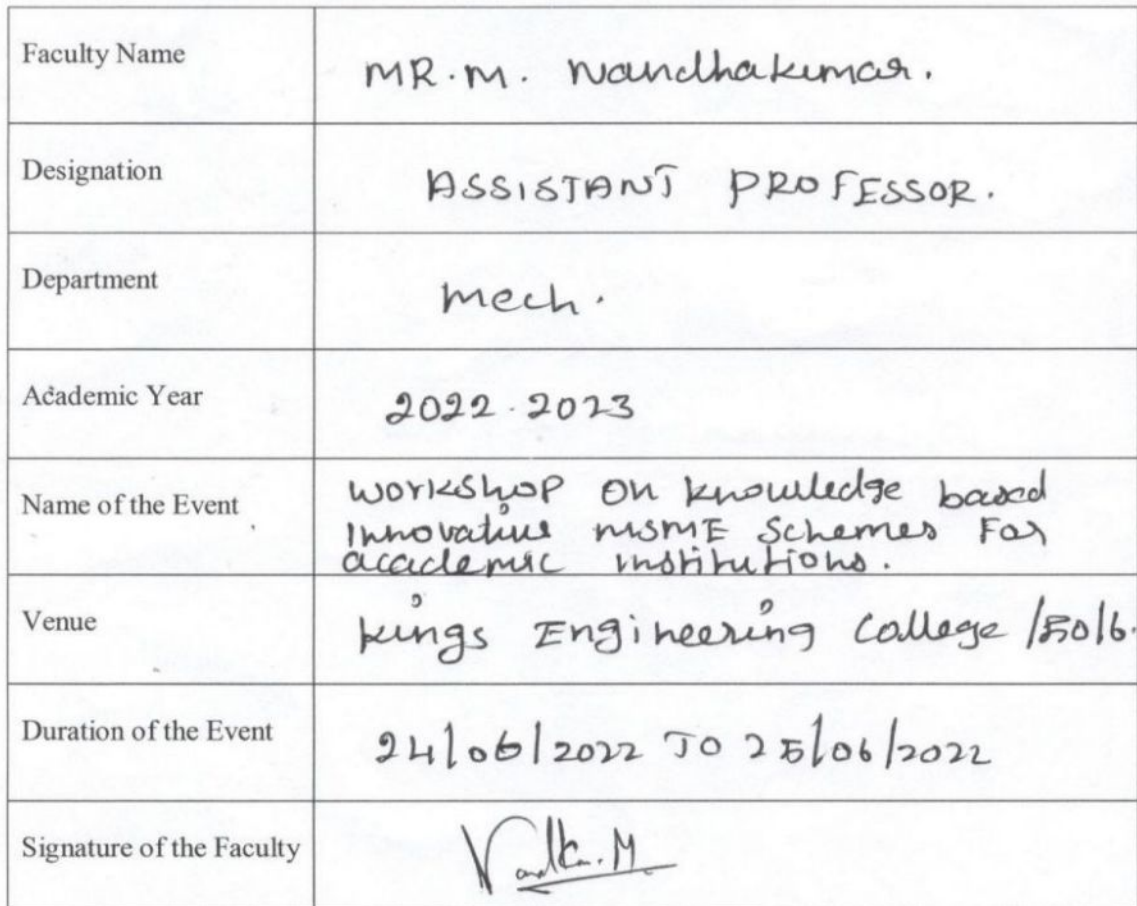 Faculty Name MR. M. Nandhakumar.
Designation ASSISTANT PROFESSOR.
Department Mech.
Academic Year 2022-2023
Name of the Event WORKSHOP ON knowledge based
Innovative MSME Schemes For
academic institutions.
Venue Kings Engineering College
Duration of the Event 24/06/2022 TO 25/06/2022
Signature of the Faculty